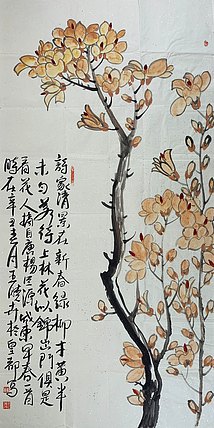 詩家清景在新春緑柳才黄半
未匀若待上林花似錦出門俱是
看花人摘自唐楊巨源城東早春一首
時在辛丑五月王於皇都寫